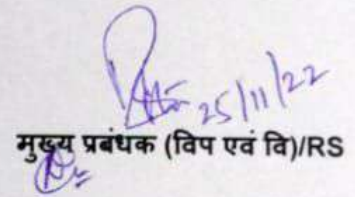 25/11/22
मुख्य प्रबंधक (विप एवं वि)/RS